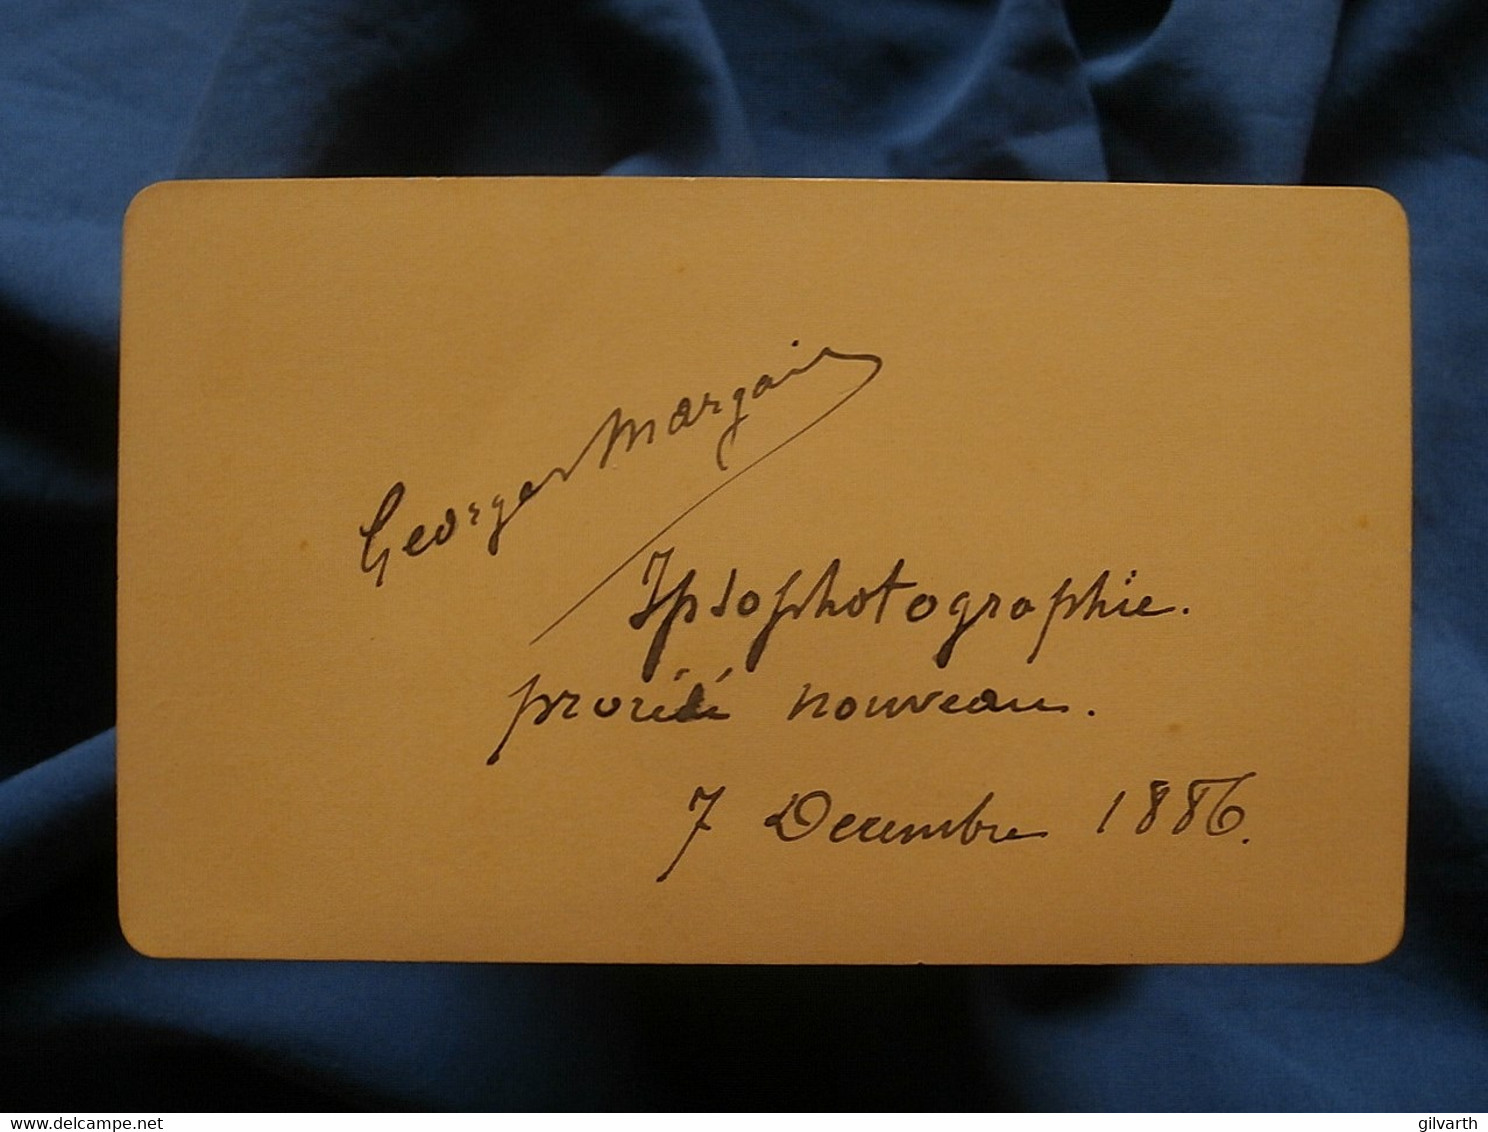 Georges Margain
Ipsophotographie.
procédé nouveau.
7 Decembre 1886.
delcampe.net
gilvarth